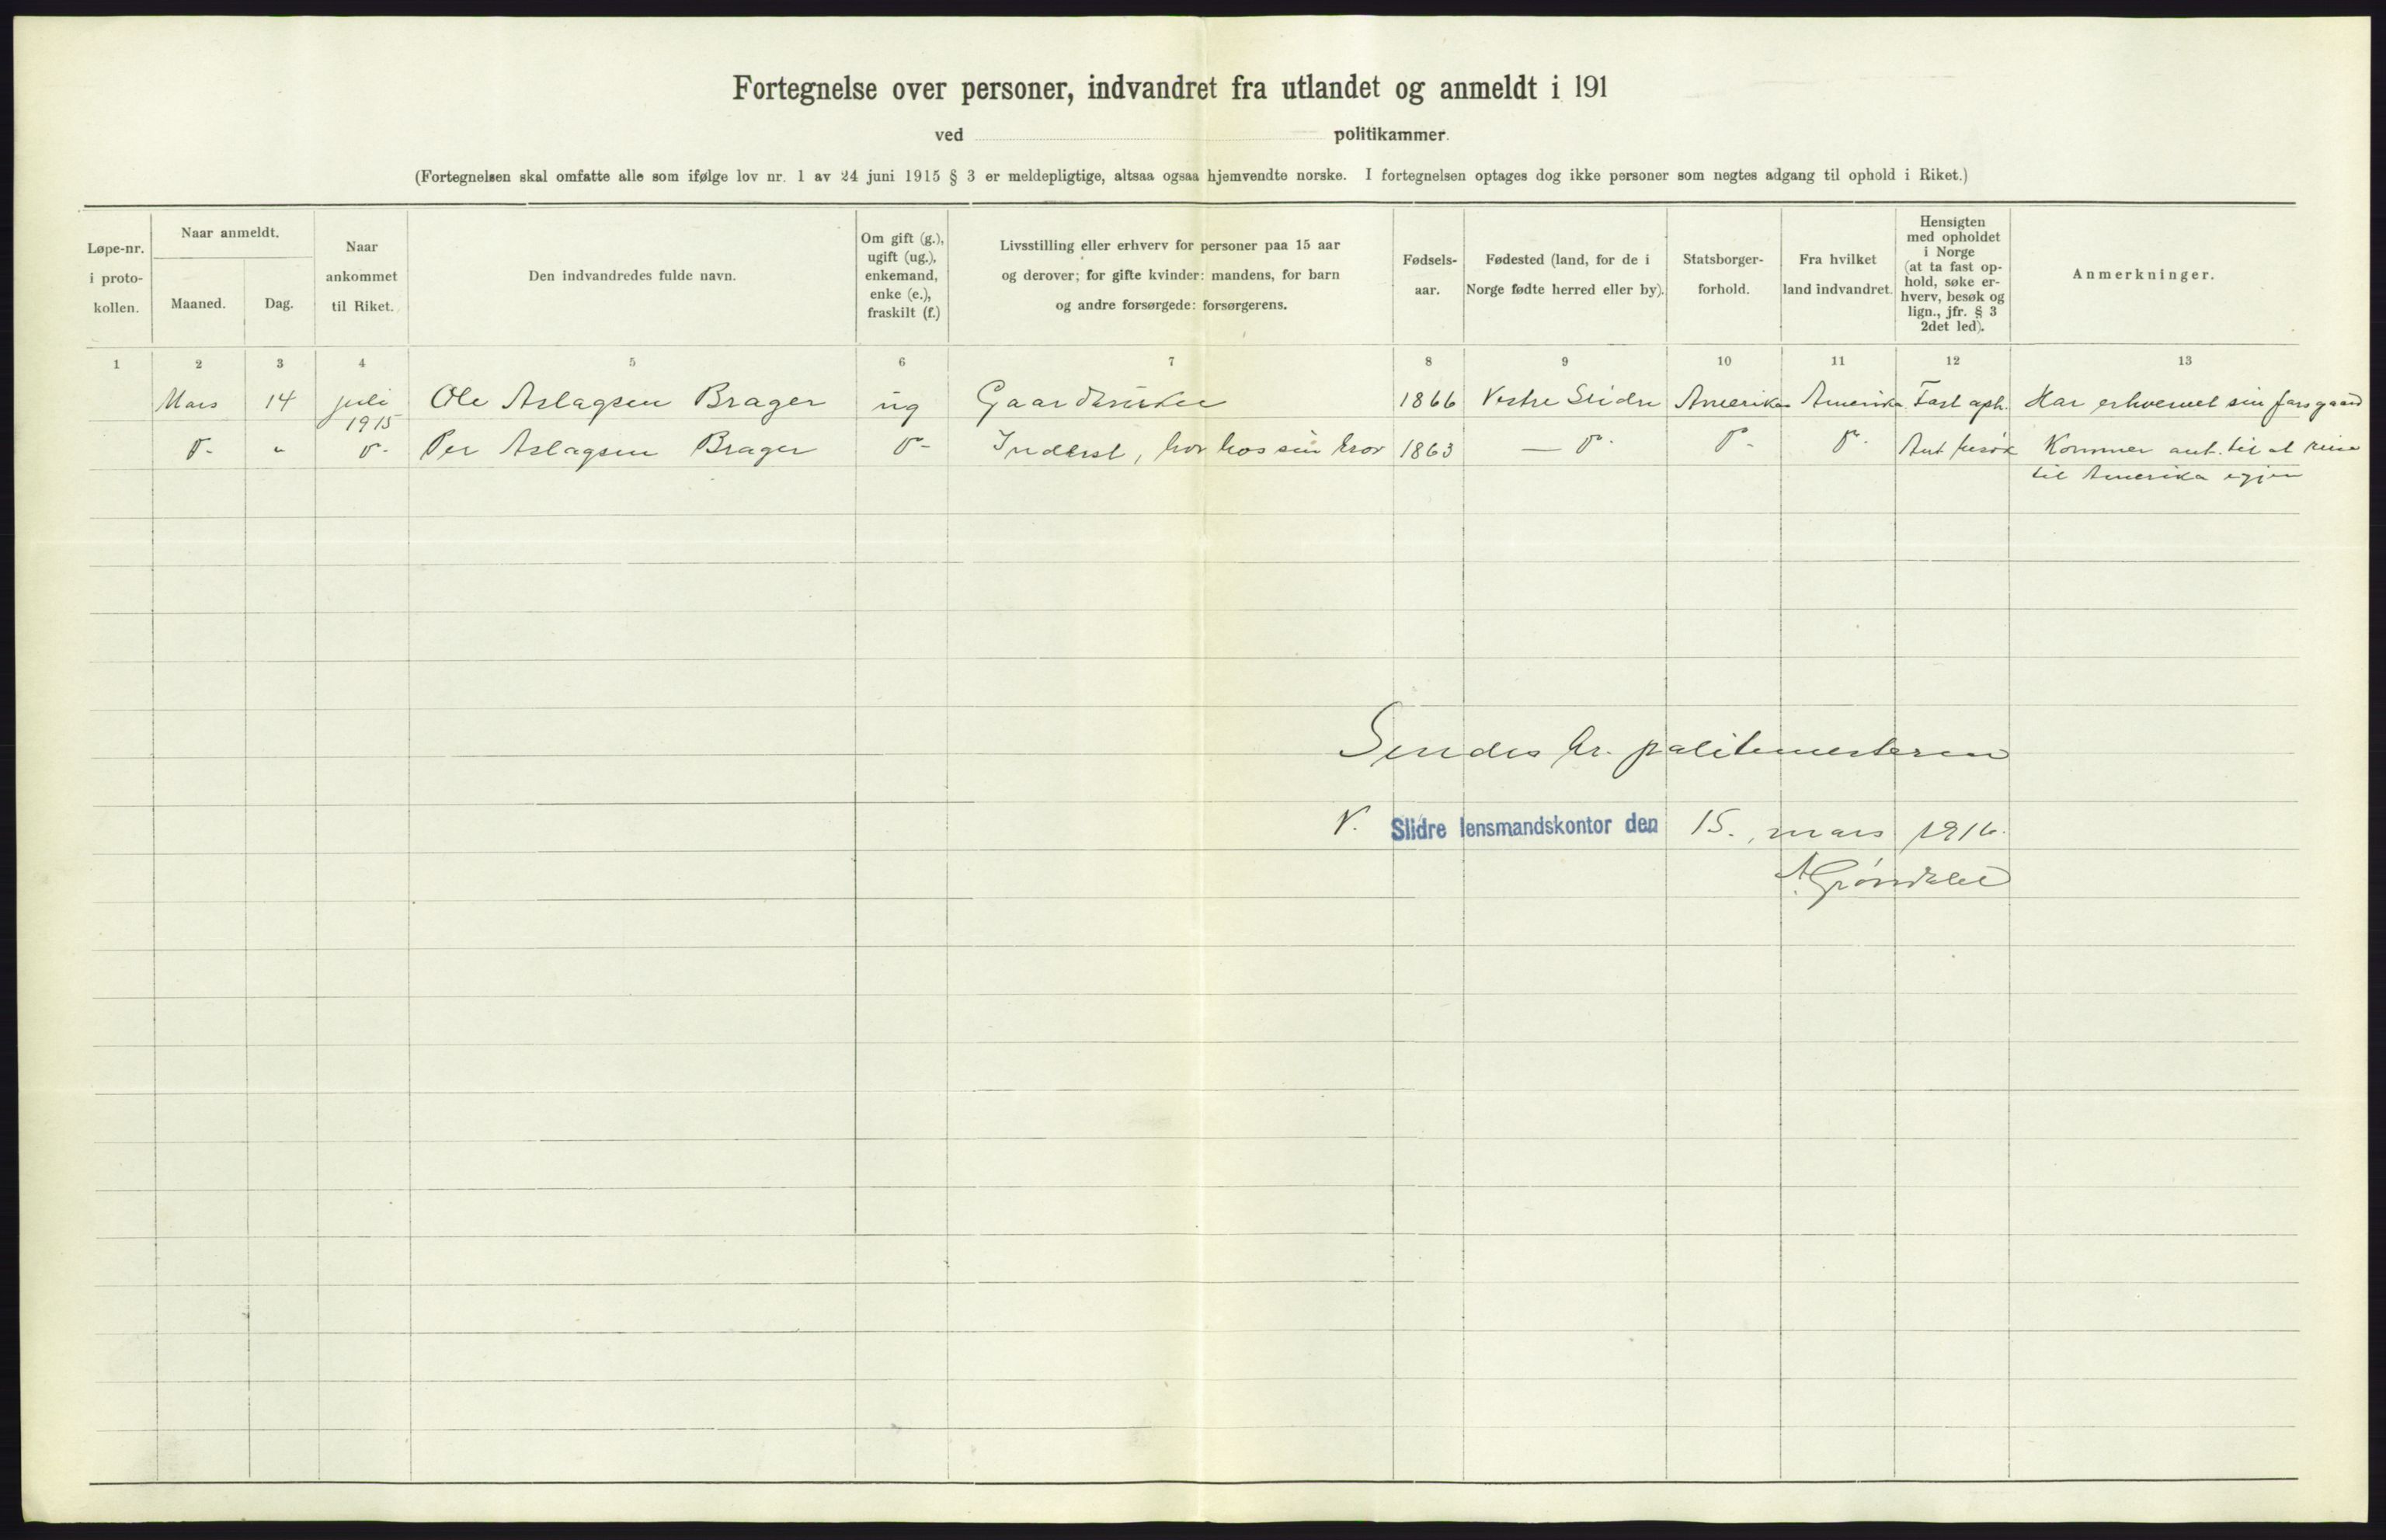 Fortegnelse over personer, indvandret fra utlandet og anmeldt i 191
ved politikammer.
(Fortegnelsen skal omfatte alle som ifølge lov nr. 1 av 24 juni 1915 § 3 er meldepligtige, altsaa ogsaa hjemvendte norske. I fortegnelsen optages dog ikke personer som negtes adgang til ophold i Riket.)
Løpe-nr. i proto- kollen.
Naar anmeldt.
Maaned.
Dag.
Naar ankommet til Riket.
Den indvandredes fulde navn.
Om gift (g.), ugift (ug.), enkemand, enke (e.), fraskilt (f.)
Livsstilling eller erhverv for personer paa 15 aar og derover; for gifte kvinder: mandens, for barn og andre forsørgede: forsørgerens.
Fødsels- aar.
Fødested (land, for de i Norge fødte herred eller by).
Statsborger- forhold.
Fra hvilket land indvandret.
Hensigten med opholdet i Norge (at ta fast op- hold, søke er- hverv, besøk og lign., jfr. § 3 2det led).
Anmerkninger.
1 2 3 4 5 6 7 8 9 10 11 12 13
Mars 14 juli 1915 Ole Aslagsen Brager ug Gaardbruker 1866 Vestre Slidre Amerika Amerika Fast oph. Har erhvervet sin farsgaard
D- " D- Per Aslagsen Brager D- Inderst, bor hos sin bror 1863 — D- D- D- Ant besøk Kommer ant. til at reise
til Amerika igjen
Sendes hr. politimesteren
V. Slidre lensmandskontor den 15. mars 1916.
A. Grøndalen